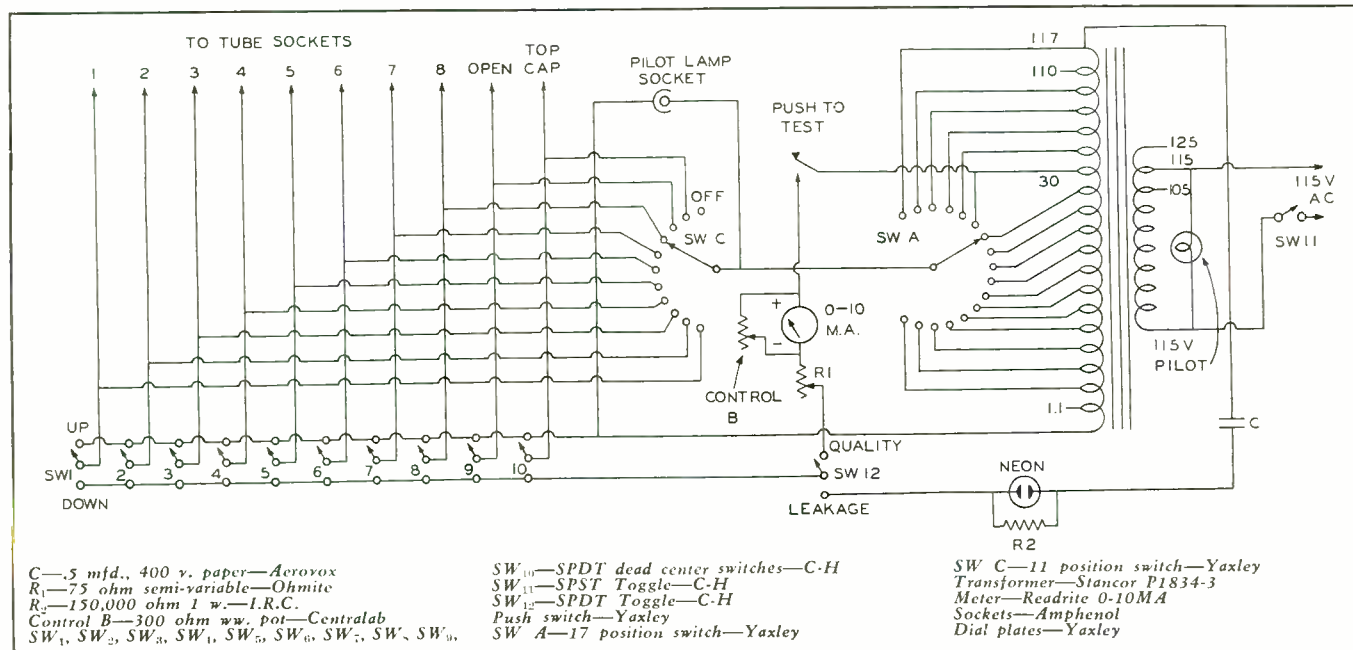 TO TUBE SOCKETS
1 2 3 4 5 6 7 8 OPEN TOP CAP
PILOT LAMP SOCKET
PUSH TO TEST
117
110
30
1.1
125
115
105
115V
115V AC
SW11
PILOT
OFF
SW C
SW A
+
0-10 M.A.
-
R1
CONTROL B
C
UP
SW1 2 3 4 5 6 7 8 9 10
DOWN
QUALITY
SW12
LEAKAGE
NEON
R2
C—.5 mfd., 400 v. paper—Aerovox
R₁—75 ohm semi-variable—Ohmite
R₂—150,000 ohm 1 w.—I.R.C.
Control B—300 ohm ww. pot—Centralab
SW₁, SW₂, SW₃, SW₄, SW₅, SW₆, SW₇, SW, SW₉,
SW₁₀—SPDT dead center switches—C-H
SW₁₁—SPST Toggle—C-H
SW₁₂—SPDT Toggle—C-H
Push switch—Yaxley
SW A—17 position switch—Yaxley
SW C—11 position switch—Yaxley
Transformer—Stancor P1834-3
Meter—Readrite 0-10MA
Sockets—Amphenol
Dial plates—Yaxley